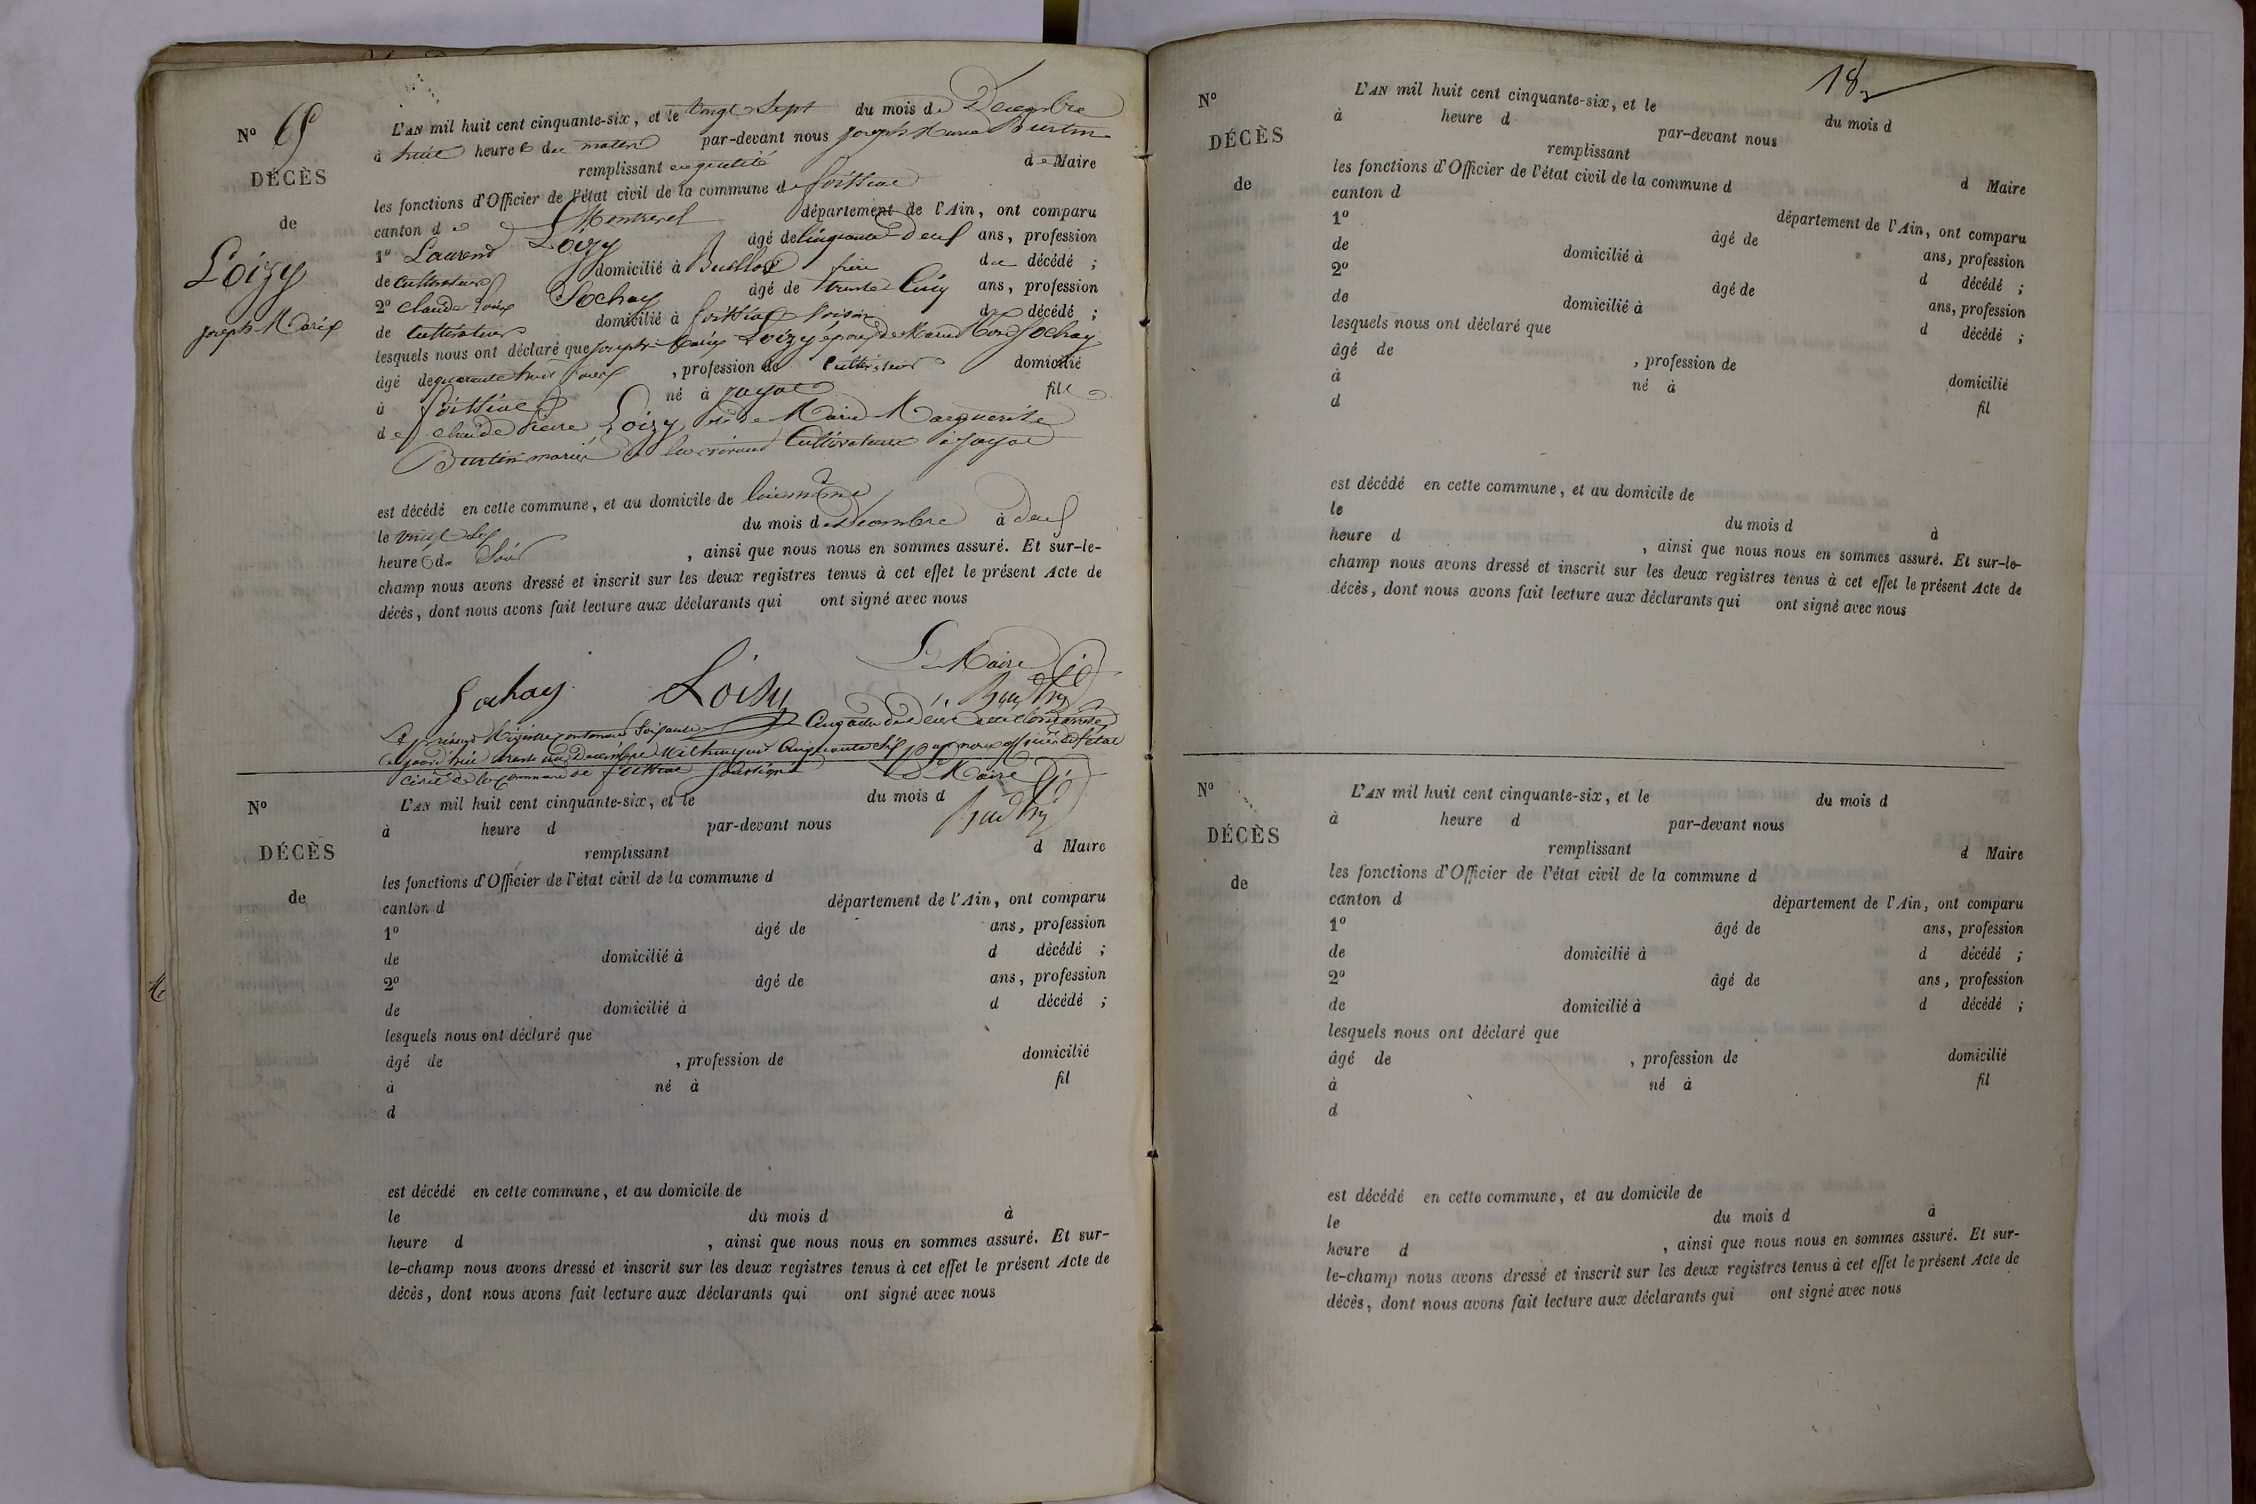 N° 65
DÉCÈS
de
Loizy
joseph Marie
L'AN mil huit cent cinquante-six, et le vingt Sept du mois de Décembre
à huit heures du matin par-devant nous joseph Marie Burtin
remplissant en qualité de Maire
les fonctions d'Officier de l'état civil de la commune de foissiat
canton de Montrevel département de l'Ain, ont comparu
1° Laurent Loizy âgé de Cinquante deux ans, profession
de Cultivateur domicilié à frère du décédé ;
2° Claude Sochay âgé de trente Cinq ans, profession
de Cultivateur domicilié à foissiat voisin du décédé ;
lesquels nous ont déclaré que joseph Marie Loizy époux de Sochay
âgé de quarante trois , profession de Cultivateur domicilié
à foissiat né à jayat fils
de Claude Pierre Loizy et de Marie Marguerite
Burtin mariés Cultivateurs à jayat
est décédé en cette commune, et au domicile de lui même
le vingt six du mois de décembre à deux
heures du Soir , ainsi que nous nous en sommes assuré. Et sur-le-
champ nous avons dressé et inscrit sur les deux registres tenus à cet effet le présent Acte de
décès, dont nous avons fait lecture aux déclarants qui ont signé avec nous
Le Maire
Sochay Loisy
Le présent Registre contenant Soixante Cinq actes de décès a été Clos arrêté
aujourd'hui trente un Décembre Mil huit cent Cinquante Six par nous officier de l'état
civil de la Commune de foissiat Soussigné Le Maire
N°
DÉCÈS
de
L'AN mil huit cent cinquante-six, et le du mois d
à heure d par-devant nous
remplissant d Maire
les fonctions d'Officier de l'état civil de la commune d
canton d département de l'Ain, ont comparu
1° âgé de ans, profession
de domicilié à d décédé ;
2° âgé de ans, profession
de domicilié à d décédé ;
lesquels nous ont déclaré que
âgé de , profession de domicilié
à né à fil
d
est décédé en cette commune, et au domicile de
le du mois d à
heure d , ainsi que nous nous en sommes assuré. Et sur-
le-champ nous avons dressé et inscrit sur les deux registres tenus à cet effet le présent Acte de
décès, dont nous avons fait lecture aux déclarants qui ont signé avec nous
18
N°
DÉCÈS
de
L'AN mil huit cent cinquante-six, et le du mois d
à heure d par-devant nous
remplissant d Maire
les fonctions d'Officier de l'état civil de la commune d
canton d département de l'Ain, ont comparu
1° âgé de ans, profession
de domicilié à d décédé ;
2° âgé de ans, profession
de domicilié à d décédé ;
lesquels nous ont déclaré que
âgé de , profession de domicilié
à né à fil
d
est décédé en cette commune, et au domicile de
le du mois d à
heure d , ainsi que nous nous en sommes assuré. Et sur-le-
champ nous avons dressé et inscrit sur les deux registres tenus à cet effet le présent Acte de
décès, dont nous avons fait lecture aux déclarants qui ont signé avec nous
N°
DÉCÈS
de
L'AN mil huit cent cinquante-six, et le du mois d
à heure d par-devant nous
remplissant d Maire
les fonctions d'Officier de l'état civil de la commune d
canton d département de l'Ain, ont comparu
1° âgé de ans, profession
de domicilié à d décédé ;
2° âgé de ans, profession
de domicilié à d décédé ;
lesquels nous ont déclaré que
âgé de , profession de domicilié
à né à fil
d
est décédé en cette commune, et au domicile de
le du mois d à
heure d , ainsi que nous nous en sommes assuré. Et sur-
le-champ nous avons dressé et inscrit sur les deux registres tenus à cet effet le présent Acte de
décès, dont nous avons fait lecture aux déclarants qui ont signé avec nous